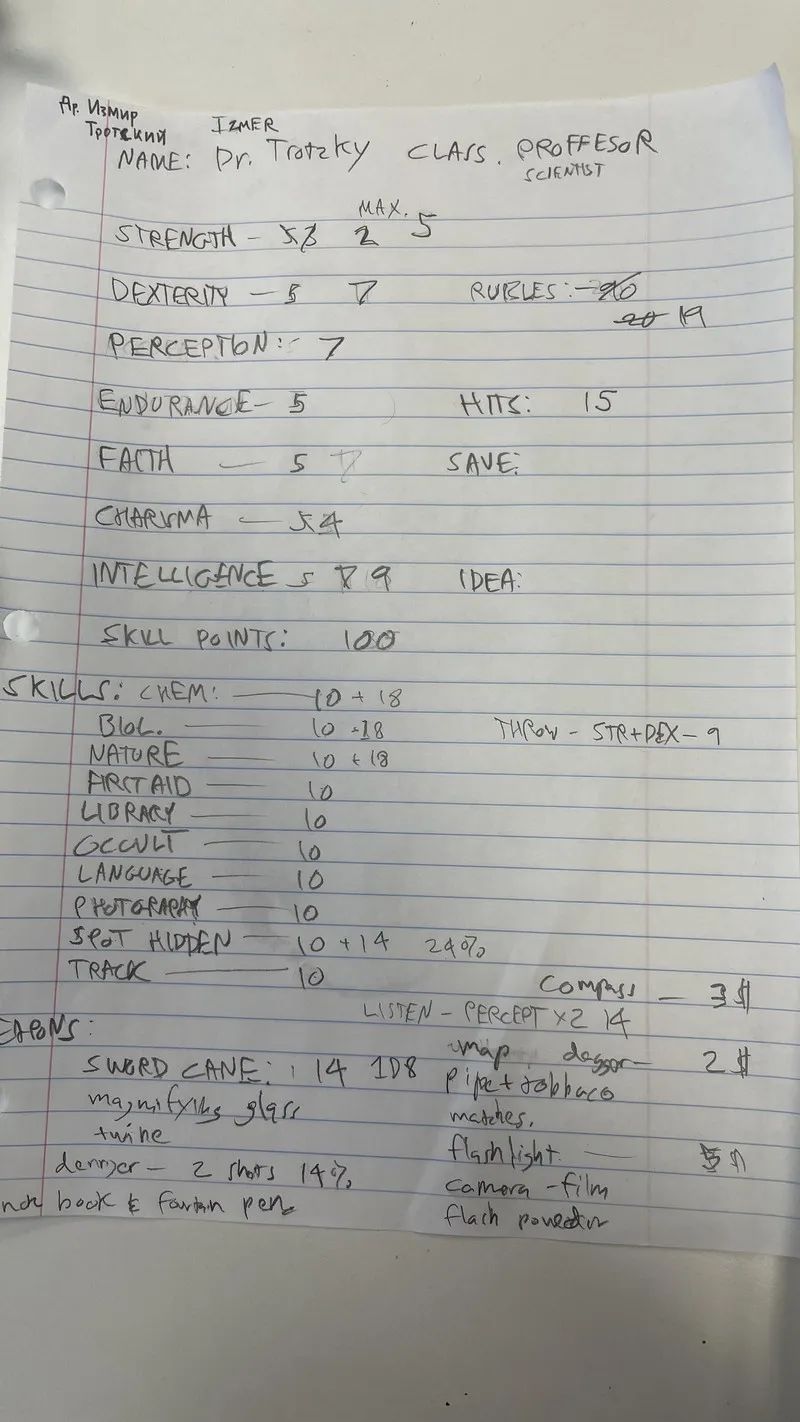 Др. Измир
Тротский
IZMER
NAME: Dr. Trotzky CLASS. PROFFESOR
SCIENTIST
MAX.
STRENGTH - 2 5
DEXTERITY - 5 7 RUBLES: - 20
20 19
PERCEPTION:- 7
ENDURANCE - 5 HITS: 15
FAITH - 5 7 SAVE:
CHARISMA - 5 4
INTELLIGENCE 5 7 9 IDEA:
SKILL POINTS: 100
SKILLS: CHEM: 10 + 18
BIOL. 10 -18 THROW - STR+DEX - 9
NATURE 10 + 18
FIRST AID 10
LIBRARY 10
OCCULT 10
LANGUAGE 10
PHOTOGRAPHY 10
SPOT HIDDEN 10 + 14 24%
TRACK 10
compass - 3$
LISTEN - PERCEPT X2 14
EAPONS:
map daggor - 2$
SWORD CANE: 14 1D8
pipe + tobbaco
magnifying glass
matches,
twine
flashlight - 5$
derringer - 2 shots 14%
camera - film
note book & fountain pen
flash powedur